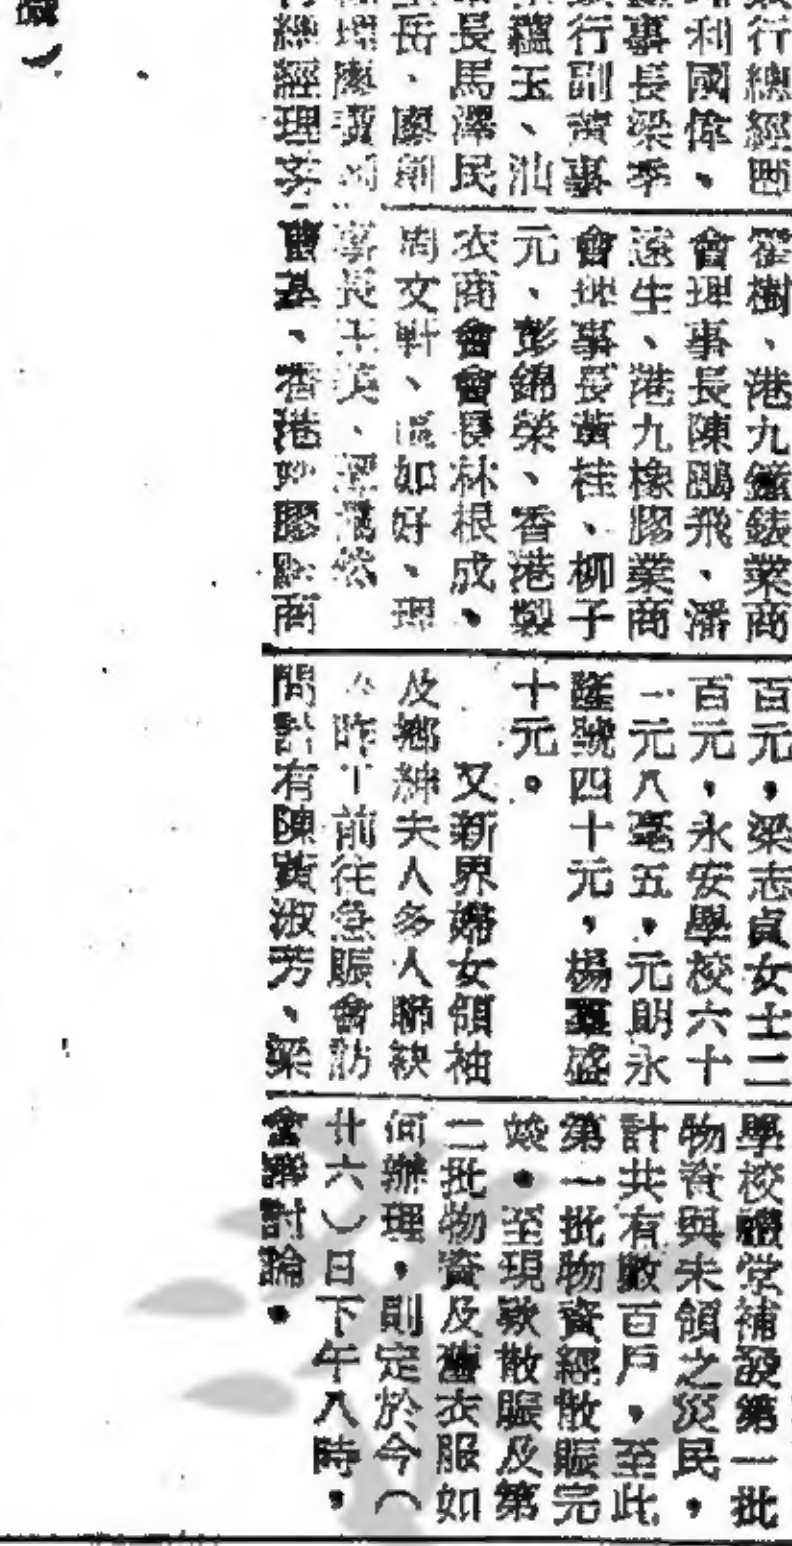 行總經理
利國偉、
事長梁季
行副董事
蘊玉、汕
長馬澤民
岳、廖創
總經理
霍樹、港九鐘錶業商
會理事長陳鵬飛、潘
遠生、港九橡膠業商
會理事長黃桂、柳子
元、彭錦榮、香港製
衣商會會長林根成、
周文軒、區如好、理
事長王英、
、香港
百元，梁志貞女士二
百元，永安學校六十
一元八毫五，元朗永
隆號四十元，楊盛
十元。
又新界婦女領袖
及鄉紳夫人多人聯袂
昨下前往急賑會訪
問計有陳黃淑芳、梁
學校禮堂補發第一批
物資與未領之災民，
計共有數百戶，至此
第一批物資經散賑完
竣。至現欵散賑及第
二批物資及舊衣服如
何辦理，則定於今（
廿六）日下午八時，
會商討論。